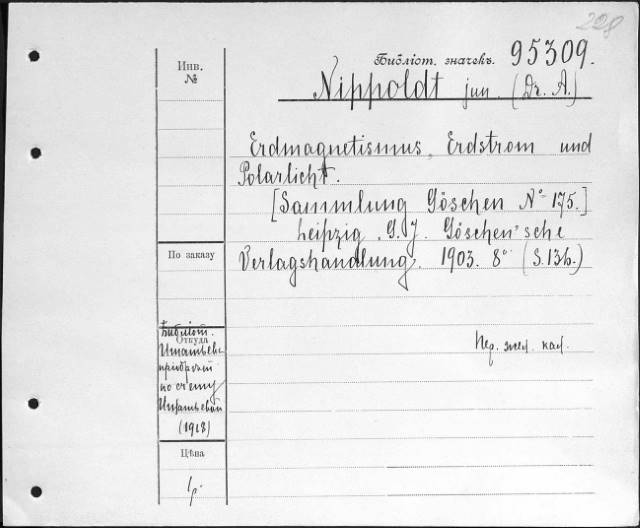 228
Библіот. значекъ 95309.
Инв.
№
Nippoldt jun. (Dr. A.)
Erdmagnetismus, Erdstrom und
Polarlicht.
[Sammlung Göschen № 175.]
Leipzig. G. J. Göschen'sche
Verlagshandlung. 1903. 8° (S. 136.)
По заказу
Откуда
Библіот.
по счету
(1918)
Цѣна
1р.